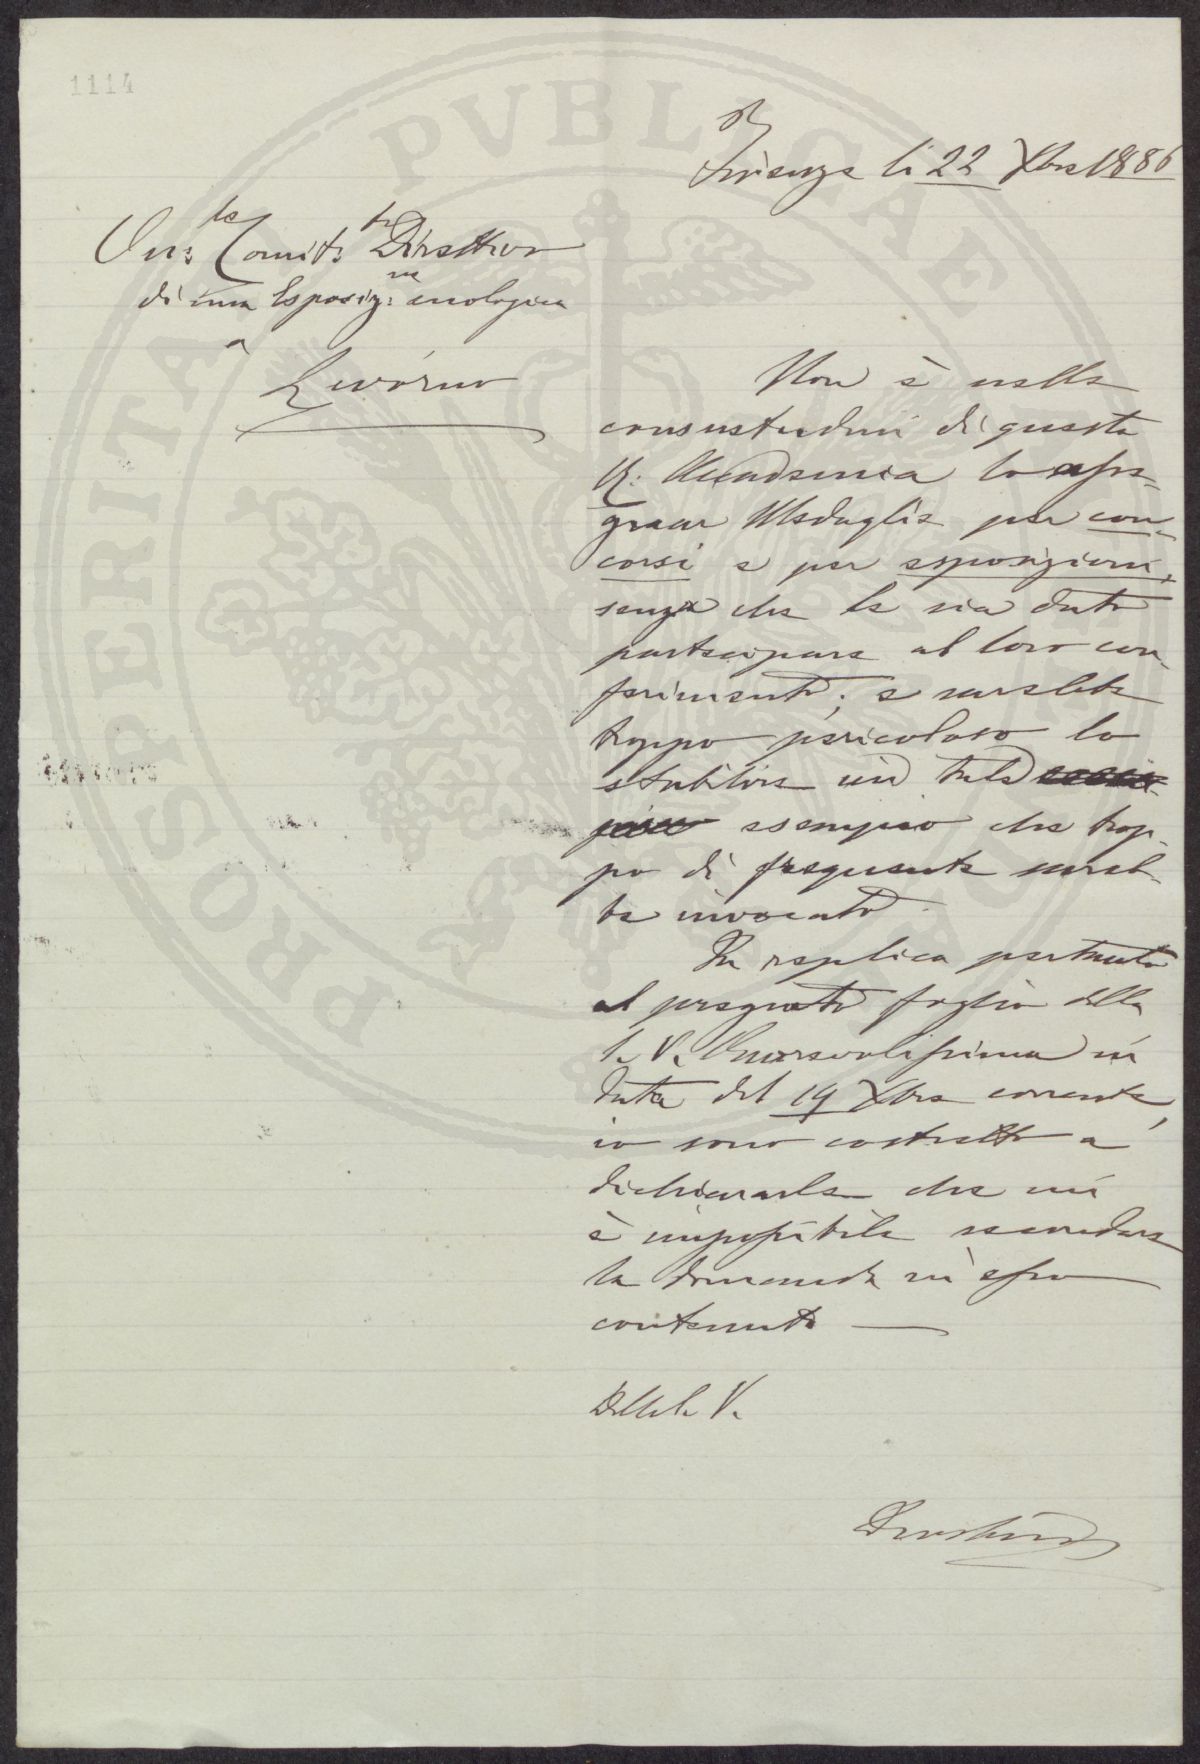 1114
Firenze li 22 Xbre 1886
On:le Comit: Direttore
di una Esposiz:ne enologica
a
Livorno
Non è nelle
consuetudini di questa
R. Accademia lo asse-
gnare Medaglie per con-
corsi e per esposizioni,
senza che le sia dato
partecipare al loro con-
ferimento; e sarebbe
troppo pericoloso lo
stabilire un tale
esempio che trop-
po di frequente sareb-
be invocato.
In replica pertanto
al pregiato foglio della
S. V. Onorevolissima in
data del 19 Xbre corrente,
io sono costretto a
dichiararle che mi
è impossibile secondare
la domanda in esso
contenuta
Della S. V.
PROSPERITATI PVBLICAE